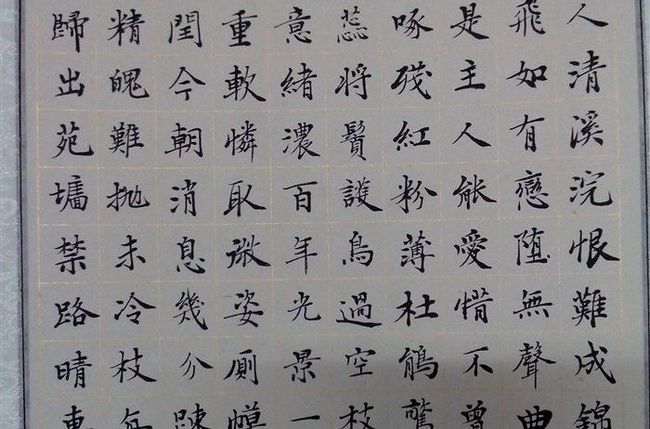 人清溪浣恨難成錦
飛如有戀墮無聲曲
是主人能愛惜不曾
啄殘紅粉薄杜鵑驚
蕊將鬢護鳥過空枝
意緒濃百年光景一
重軟憐取微姿廁
閏今朝消息幾分踈
精魄難拋未冷枝
歸出苑墉禁路晴